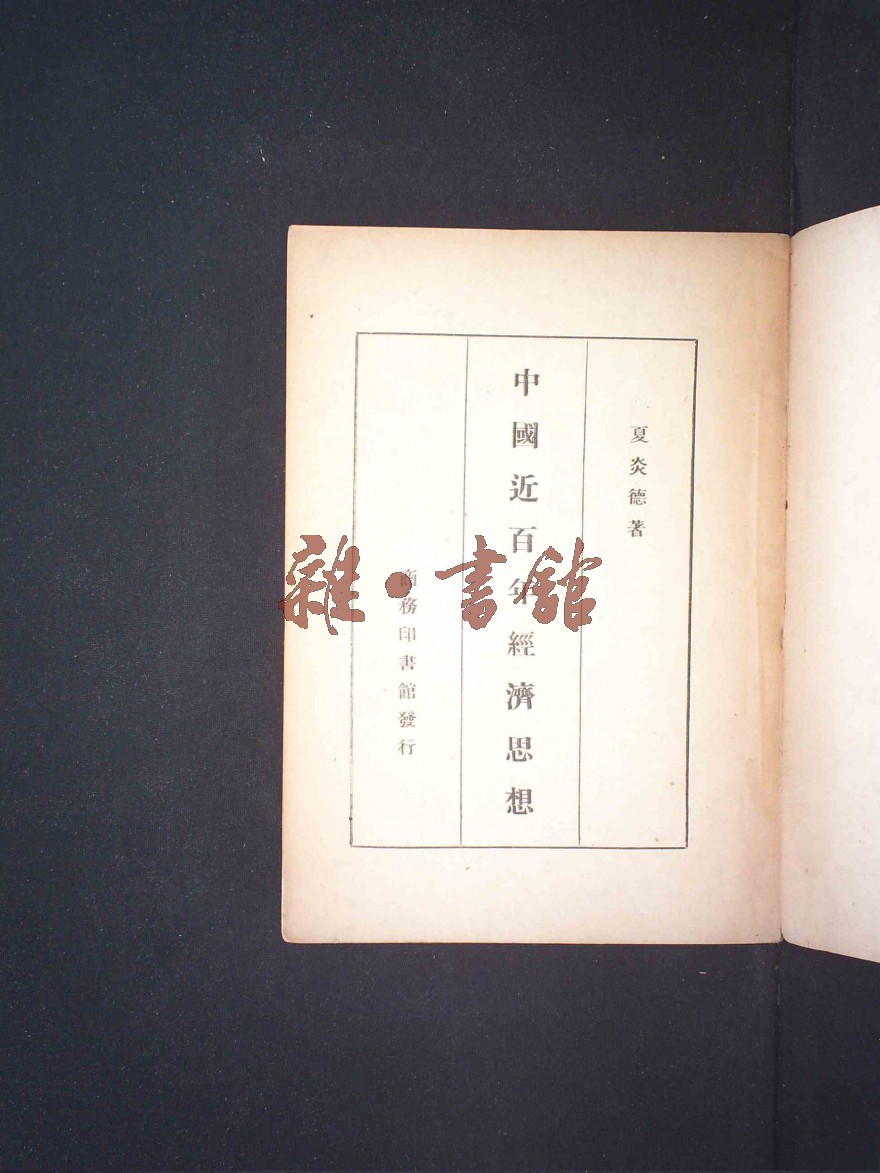 夏炎德著
中國近百年經濟思想
商務印書館發行
雜·書舘